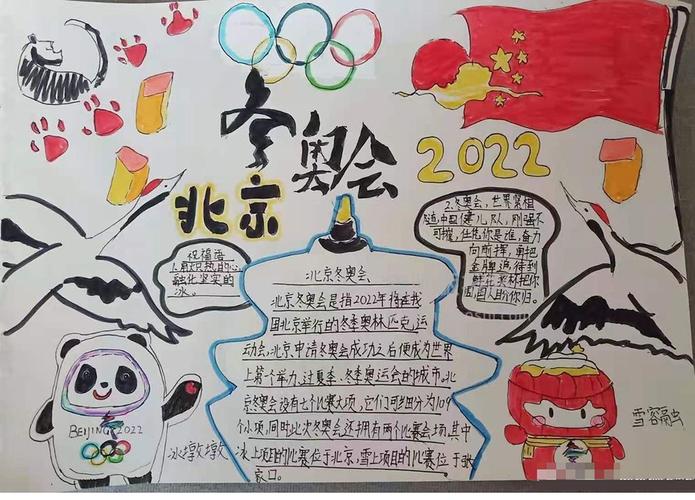 冬奥会
2022
北京
祝福语
1.用炽热的心
融化坚实的
冰。
2.冬奥会,世界紧相
随,中国健儿队,刚强不
可摧,任凭你是谁,奋力
向断挥,勇把
金牌追,得到
鲜花奖杯把你
围,国人盼你归。
北京冬奥会
北京冬奥会是指2022年将在我
国北京举行的冬季奥林匹克,运
动会,北京,申请冬奥会成功之后便成为世界
上第个举力,过夏季、冬季奥运会的城市。北
京冬奥会没有七个比赛大项,它们可纟田分为109
个小项,同时此次冬奥会还拥有两个比赛会场,其中
冰上项目的比赛位于北京,雪上项目的比赛位于张
家口。
BEIJING 2022
冰墩墩墩
雪容融虫